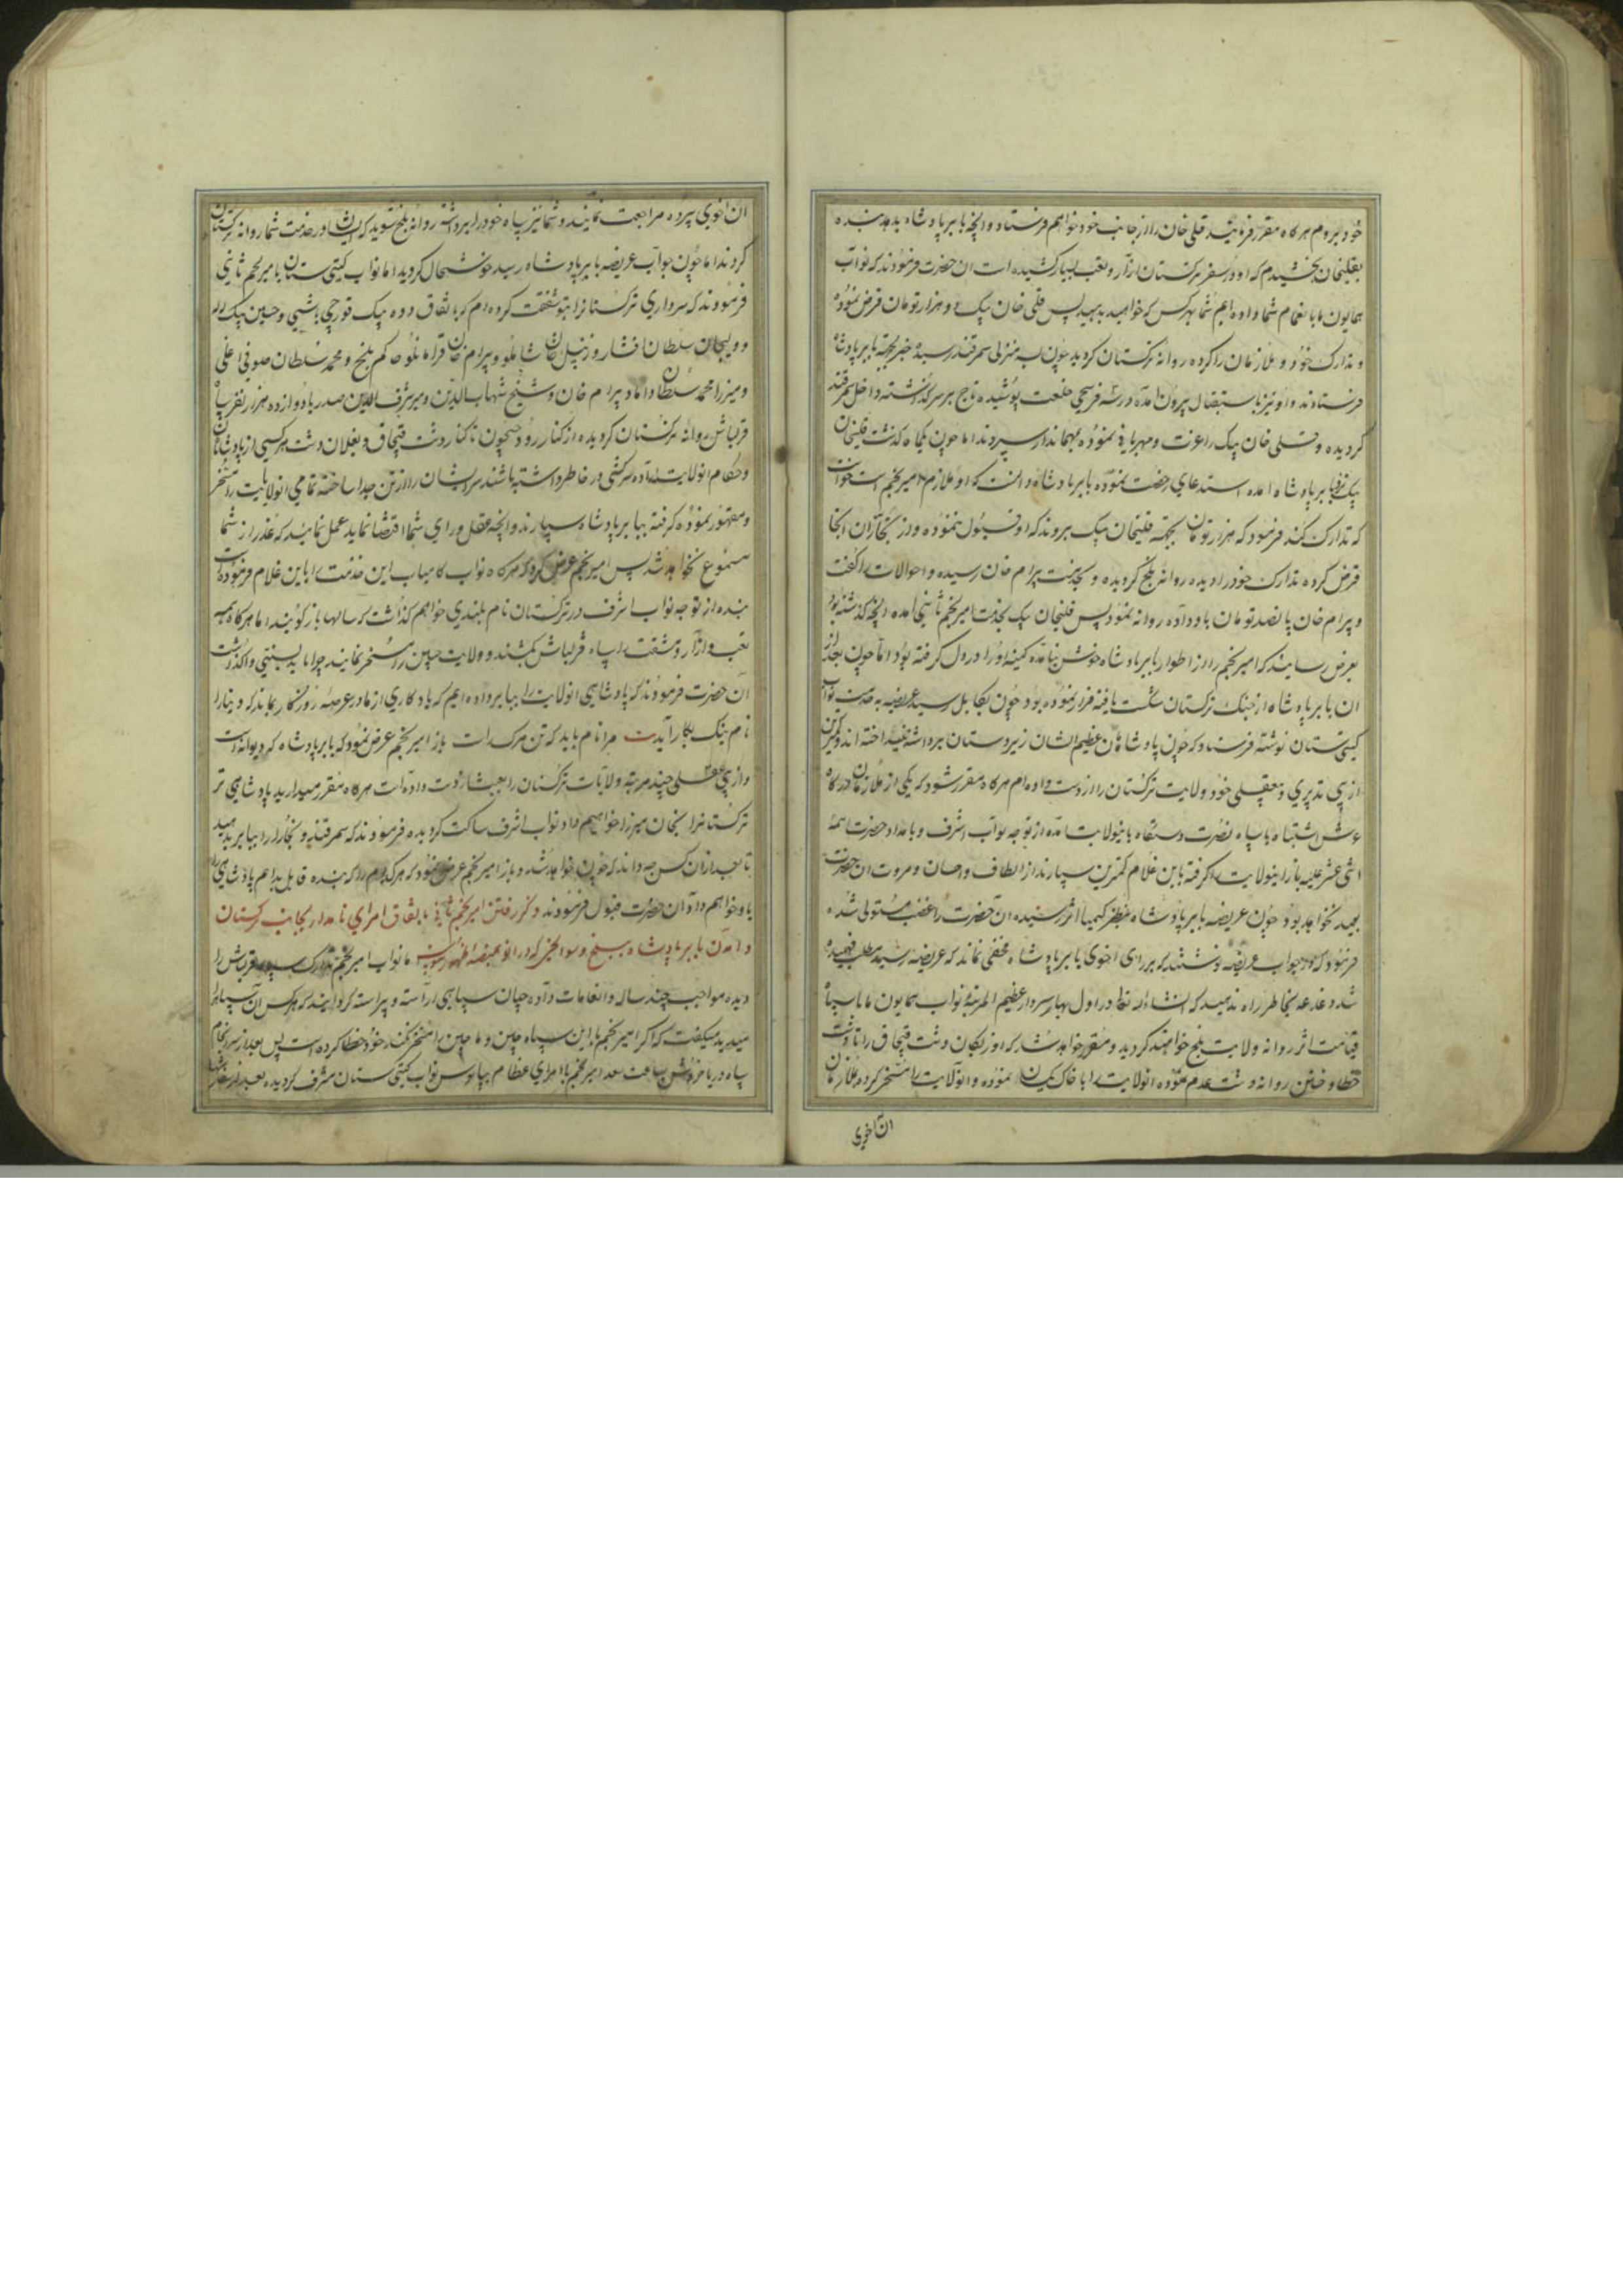 خود بروم هرکاه مقرر فرمائید قلی خان را از جانب خود خواهم فرستاد و انچه بابر پادشاه بدهد بنده
بقلیخان بخشیدم که او در سفر ترکستان ازار و تعب بسیار کشیده است ان حضرت فرمودند که نواب
همایون ما بانعام شما داده ایم شما بهرکس که خواهید بدهید پس قلی خان بیک دو هزار تومان قرض نموده
و تدارک خود و ملازمان را کرده روانه ترکستان کردید چون بیک منزلی سمرقند رسید خبر بجهة بابر پادشاه
فرستادند و او نیز باستقبال بیرون امده درسه فرسخی خلعت پوشیده تاج بر سر گذاشته داخل سمرقند
کردیده و قلی خان بیک را عزت و مهربانی نموده بمهماندار سپردند اما چون یکماه گذشت قلیخان
بیک نزد بابر پادشاه امده استدعای رخصت نموده بابر پادشاه دانست که او ملازم امیر نجم است خواست
که تدارک کند فرمود که هزار تومان بجهة قلیخان بیک بردند که او قبول ننموده و از تجاران انجا
قرض کرده تدارک خود را دیده روانه بلخ کردیده و بخدمت بیرام خان رسیده و احوالات را گفت
و بیرام خان پانصد تومان باو داده روانه نمود پس قلیخان بیک بخدمت امیر نجم ثانی امده انچه گذشته بود
بعرض رسانید که امیر نجم را از اطوار بابر پادشاه خوش نیامده کینه او را در دل گرفته بود اما چون بعد از
ان بابر پادشاه از جنک ترکستان شکست یافته فرار نموده بود چون بکابل رسید عریضه بخدمت نواب
کیتی ستان نوشته فرستاد که چون پادشاهان عظیم الشان زیردستان برداشته نینداخته اند و کمترین
از بی تدبیری و بیعقلی خود ولایت ترکستان را از دست داده ام هرکاه مقرر شود که یکی از ملازمان درکاه
عرش اشتباه با سپاه نصرت دستکاه باینولایت امده از توجه نواب اشرف و بامداد حضرت ائمه
اثنی عشر علیه باز اینولایت را گرفته باین غلام کمترین سپارند از الطاف و احسان و مروت ان حضرت
بعید نخواهد بود چون عریضه بابر پادشاه بنظر کیمیا اثر رسید ان حضرت را غضب مستولی شده
فرمود که در جواب عریضه نوشتند که بر رای اخوی بابر پادشاه مخفی نماند که عریضه رسید مطلب فهمیده
شد دغدغه بخاطر راه ندهید که انشاءالله تعالی در اول بهار سردار عظیم المرتبه نواب همایون ما با سپاه
قیامت اثر روانه ولایت بلخ خواهند کردید و مقرر خواهد شد که اوزبکان دشت قبچاق را تا دشت
خطا و ختن روانه دشت عدم نموده انولایت را با خاک یکسان نموده و انولایت را مسخر کرده ملازمان
ان اخوی
ان اخوی سپرده مراجعت نمایند و شما نیز سپاه خود را برداشته روانه بلخ شوید که ایشان در خدمت شما روانه ترکستان
کردند اما چون جواب عریضه بابر پادشاه رسید خوشحال کردید اما نواب کیتی ستان بامیر نجم ثانی
فرمودند که سرداری ترکستانرا بتو شفقت کرده ام که باتفاق دده بیک قورچی باشی و حسین بیک لله
و ولیجان سلطان افشار و زینل خان شاملو و بیرام خان قرامانلو حاکم بلخ و محمد سلطان صوفی اغلی
و میرزا محمد سلطان داماد بیرام خان و شیخ شهاب الدین و میر شرف الدین صدر با دوازده هزار نفر سپاه
قزلباش روانه ترکستان کردیده از کنار رود جیحون تا کنار دشت قبچاق و بغلان دشت هرکسی از پادشاهان
و حکام انولایت اراده سرکشی در خاطر داشته باشند سر ایشان را از تن جدا ساخته تمامی انولایت را مسخر
و مقهور نموده گرفته ببابر پادشاه سپارند و انچه عقل و رای شما اقتضا نماید عمل نمائید که عذر از شما
مسموع نخواهد شد پس امیر نجم عرض کرد که هرکاه نواب کامیاب این خدمت را باین غلام فرموده است
بنده از توجه نواب اشرف در ترکستان نام بلندی خواهم گذاشت که سالها باز گویند اما هرکاه همه
تعب و ازار و مشقت را سپاه قزلباش بکشند و ولایت چنین را مسخر نمایند چرا باید بسنی واگذاشت
ان حضرت فرمودند که پادشاهی انولایت را ببابر داده ایم که یادکاری از ما در عرصه روزکار بماند که دنیا را
نام نیک بکار آیدت مرا نام باید که تن مرک راست باز امیر نجم عرض نمود که بابر پادشاه مرد دیوانه است
و از بی عقلی چند مرتبه ولایات ترکستان را بعبث از دست داده است هرکاه مقرر میدارید پادشاهی تر
ترکستانرا بخان میرزا خواهیم داد نواب اشرف ساکت کردیده فرمودند که سمرقند و بخارا را ببابر بدهید
تا بعد از ان کس چه داند که چون خواهد شد و باز امیر نجم عرض نمود که هرکدام را که بنده قابل بدانم پادشاهی را
باو خواهم داد ان حضرت قبول فرمودند ذکر رفتن امیر نجم ثانی باتفاق امرای نامدار بجانب ترکستان
و امدن بابر پادشاه ببلخ و سوانحی که در ان بمنصه ظهور رسید اما نواب امیر نجم تدارک سپاه قزلباش را
دیده مواجب چند ساله و انعامات داده چنان سپاهی اراسته و پیراسته گردانید که هرکس ان سپاه را
میدید میکفت که اکر امیر نجم با این سپاه چین و ماچین را مسخر نکند خود خطا کرده است پس بعد از سرانجام
سپاه دریا خروش بساعت سعد امیر نجم با امرای عظام بپابوس نواب کیتی ستان مشرف کردیده بعد از